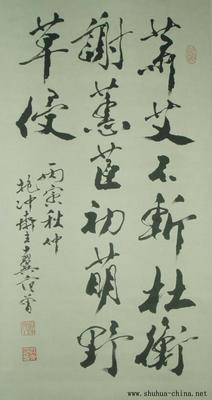 萧艾不斩杜衡
谢蕙茝初萌野
草侵
丙寅秋仲
www.shuhua-china.net